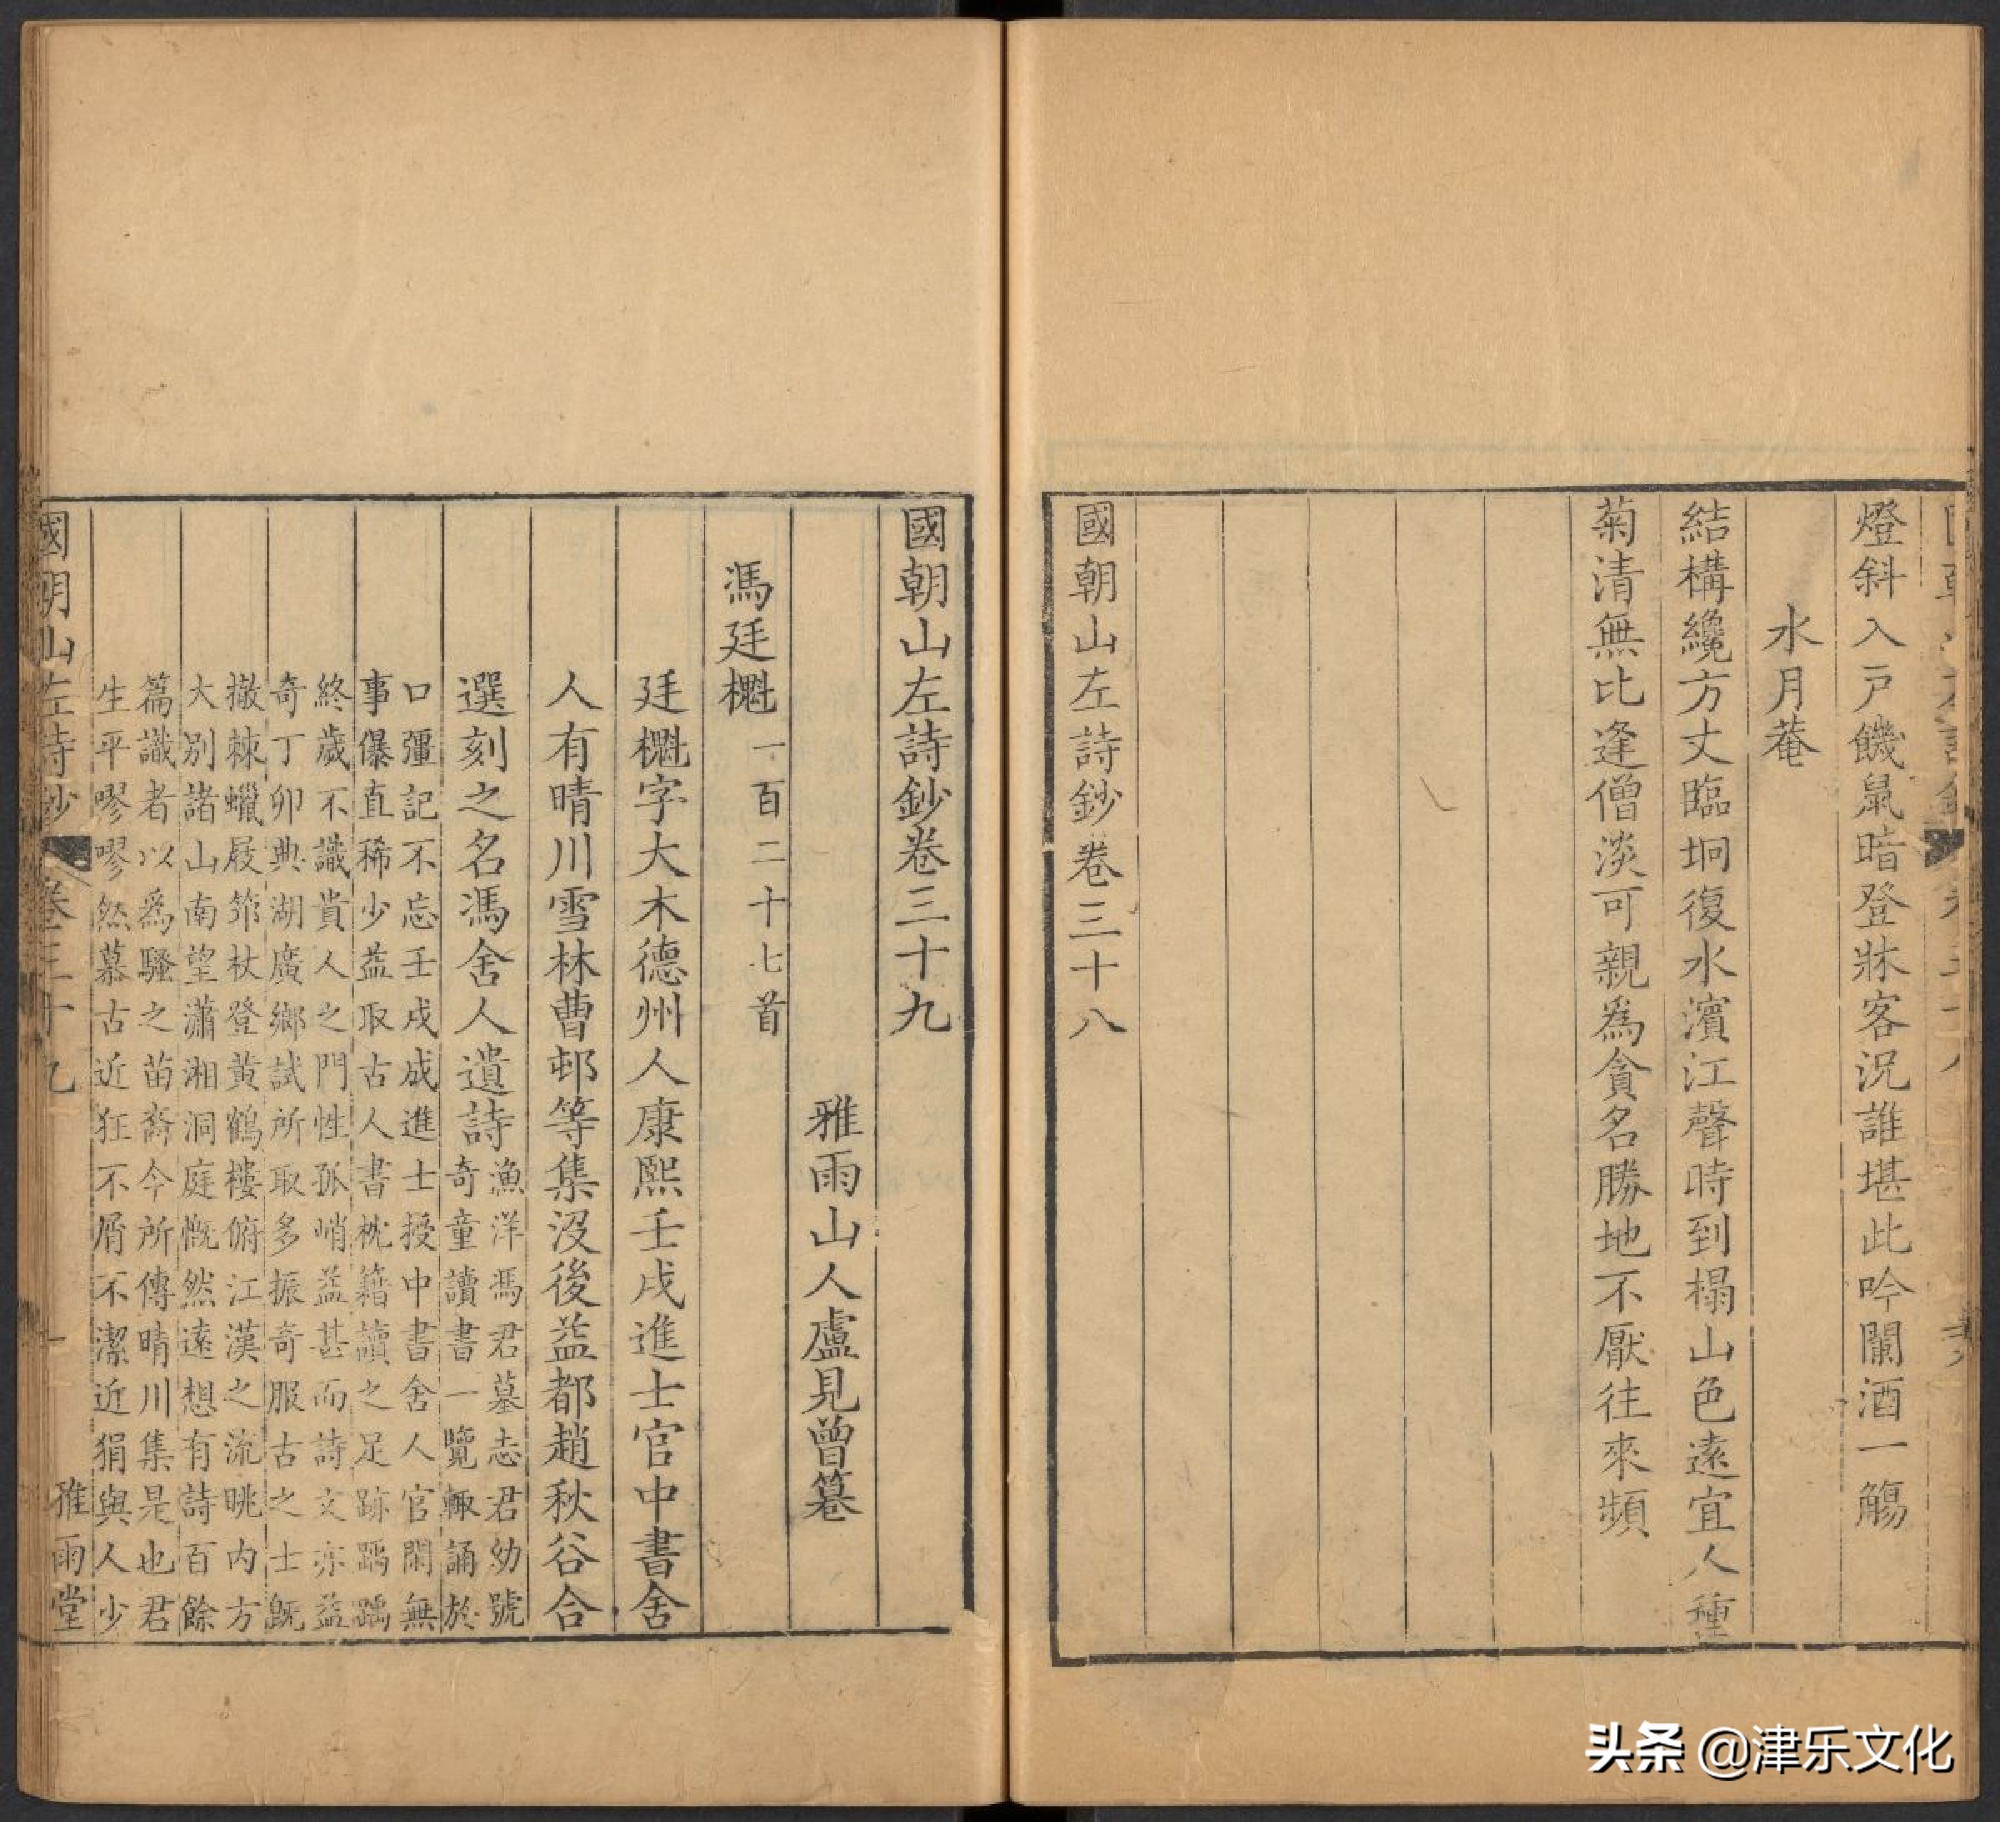 燈斜入戸饑鼠暗登牀客況誰堪此吟闌酒一觴
水月菴
結構纔方丈臨坰復水濱江聲時到榻山色遠宜人種
菊清無比逢僧淡可親為貪名勝地不厭往來頻
國朝山左詩鈔卷三十八
國朝山左詩鈔卷三十九
雅雨山人盧見曾纂
馮廷櫆一百二十七首
廷櫆字大木德州人康熙壬戌進士官中書舍
人有晴川雪林曹邨等集沒後益都趙秋谷合
選刻之名馮舍人遺詩漁洋馮君墓志君幼號
奇童讀書一覽輒誦於
口彊記不忘壬戌成進士授中書舍人官閑無
事儤直稀少益取古人書枕籍讀之足跡踽踽
終歲不識貴人之門性孤峭益甚而詩文亦益
奇丁卯典湖廣鄉試所取多振奇服古之士旣
撤棘蠟屐筇杖登黃鶴樓俯江漢之流眺內方
大别諸山南望瀟湘洞庭慨然遠想有詩百餘
篇識者以為騷之苗裔今所傳晴川集是也君
生平嘐嘐然慕古近狂不屑不潔近狷與人少
國朝山左詩鈔 卷三十九 一 雅雨堂
头条 @津乐文化